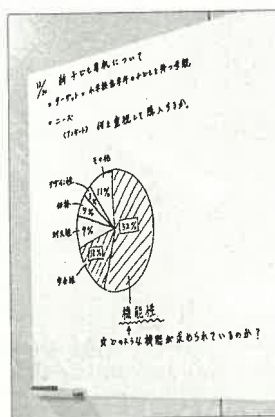 12/20 新子ども専机について
• ターゲット = 小学校高学年の子どもを持つ母親
• ニーズ
(アンケート) 何を重視して購入するか。
その他
11%
デザイン性
価格
9%
耐久性
9%
安全性
機能性
☆どのような機能が求められているのか?